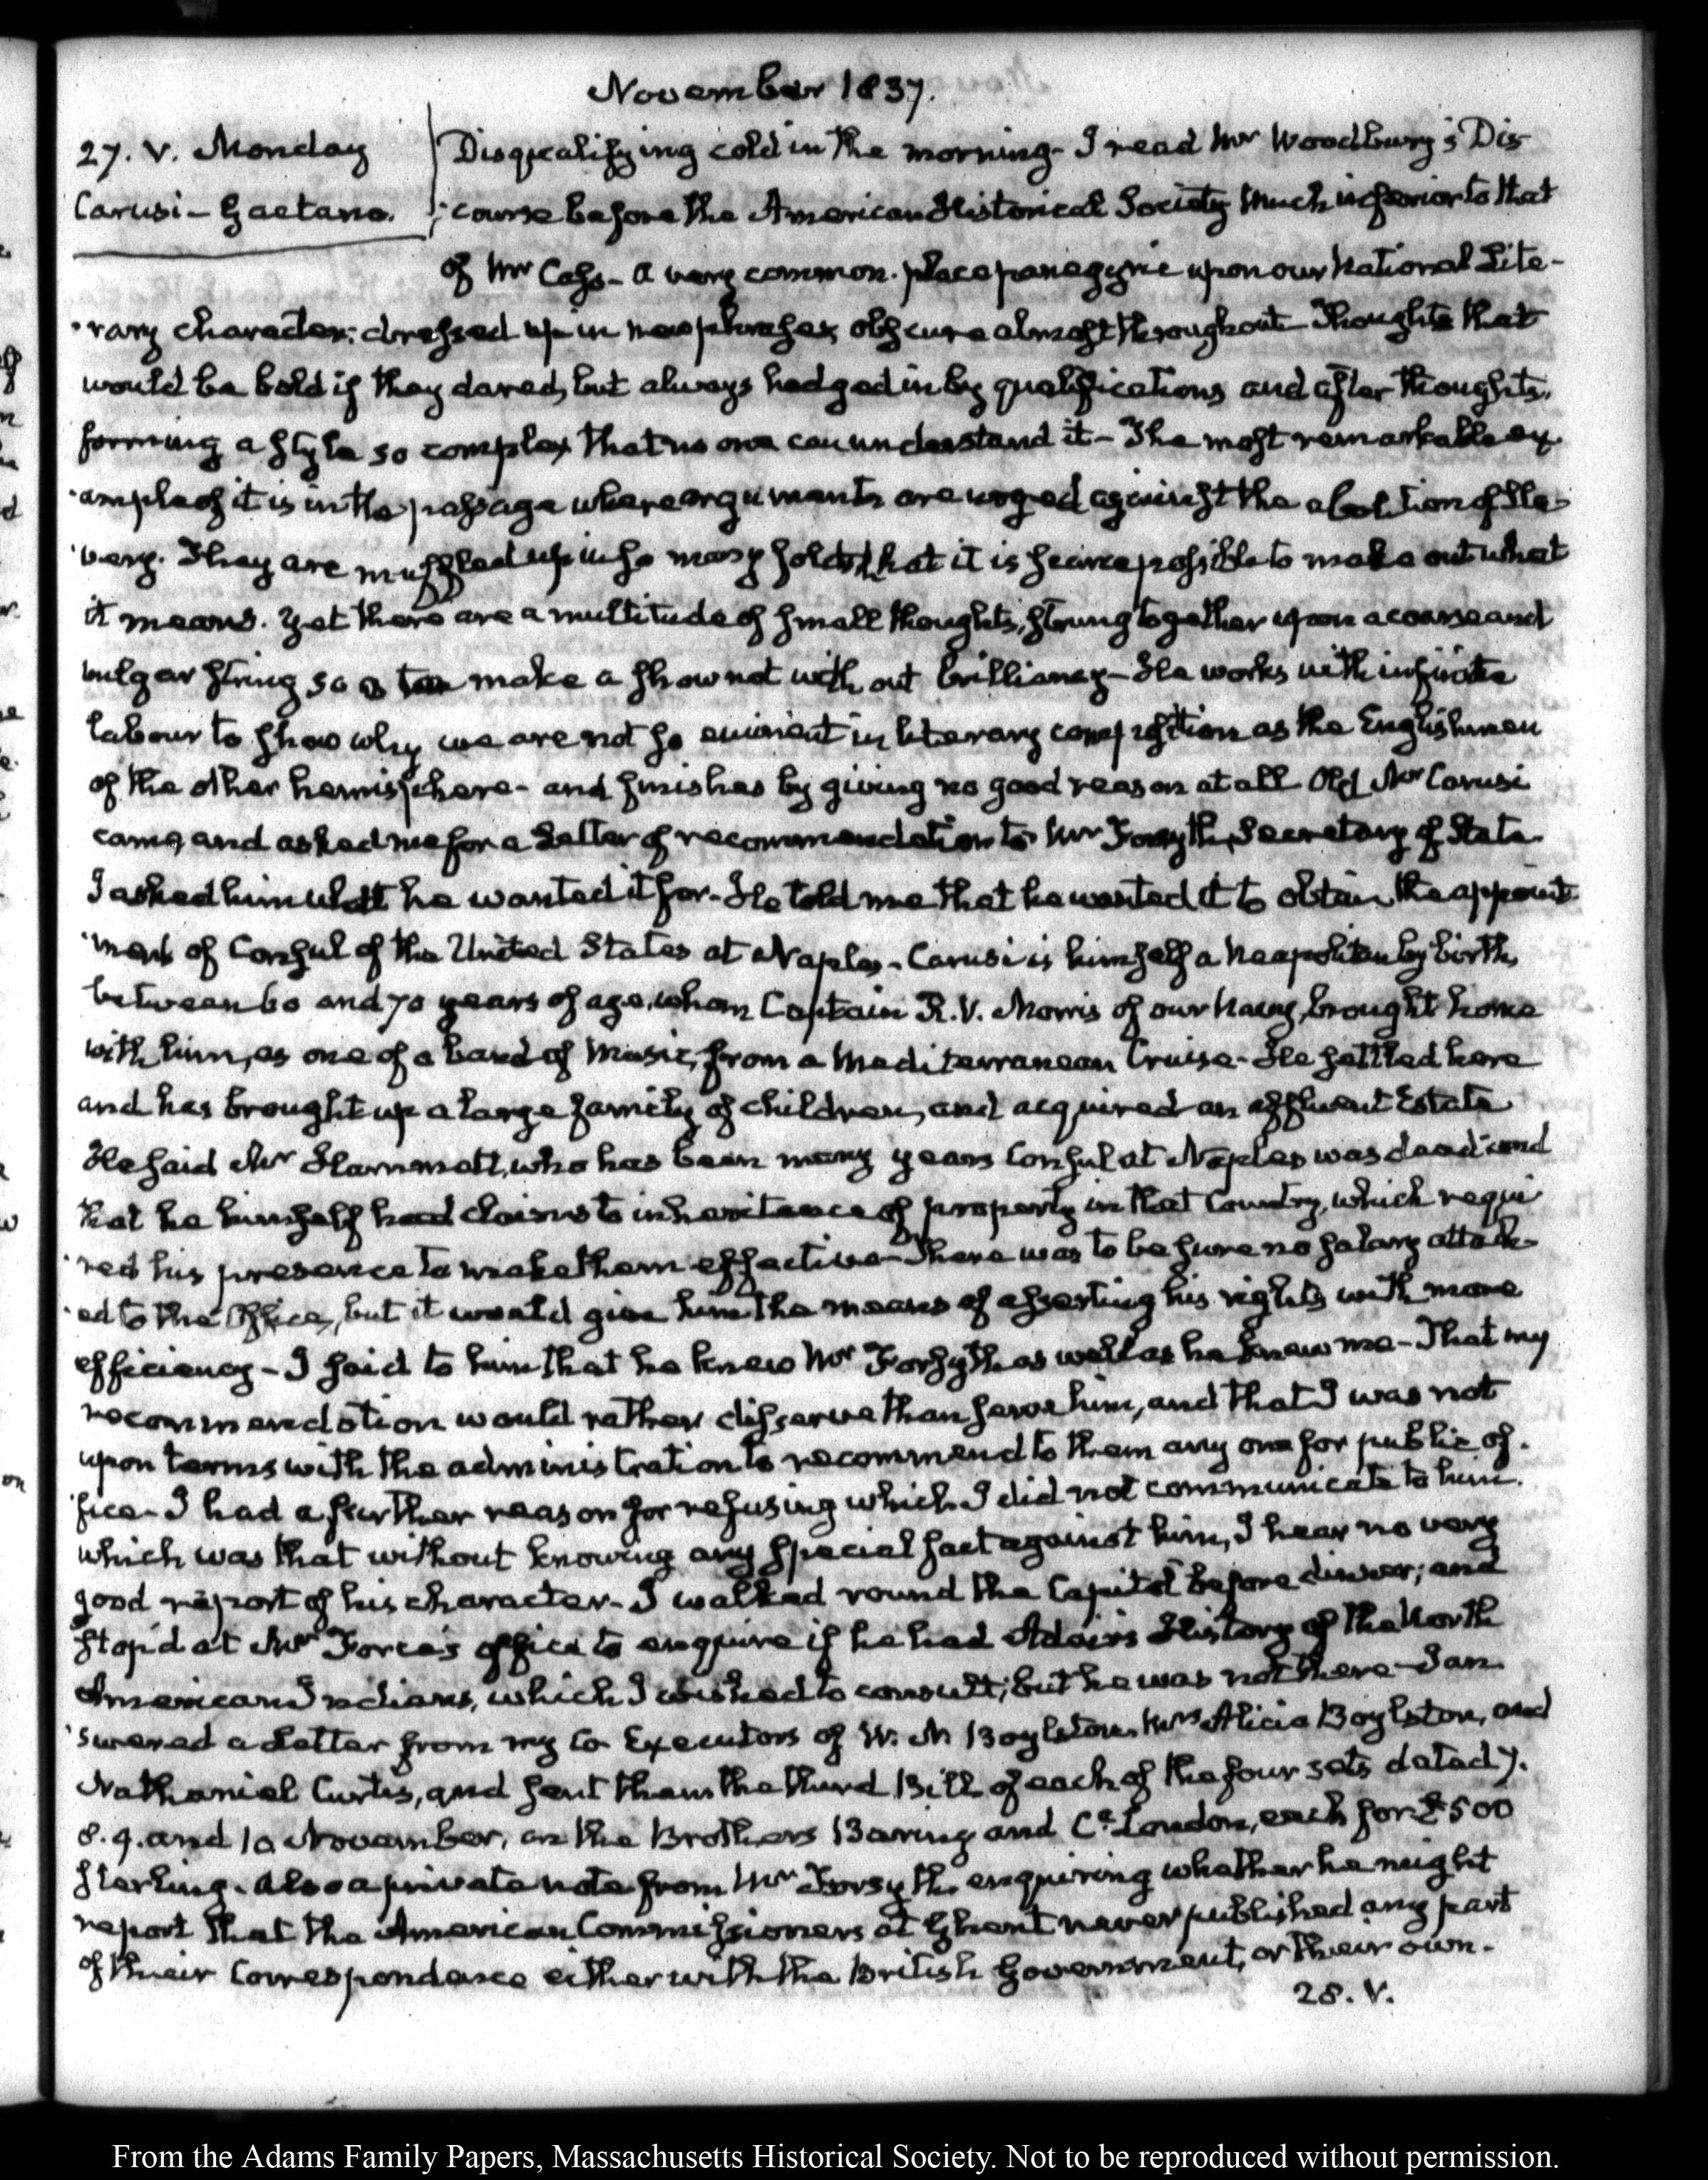 November 1837.
27. V. Monday
Carusi - Gaetano.
Disqualifying cold in the morning - I read Mr Woodbury's Dis
:course before the American Historical Society much inferior to that
of Mr Cass - a very common-place panegyric upon our National Lite-
:rary character; dressed up in new phrases, obscure almost throughout - Thoughts that
would be bold if they dared, but always hedged in by qualifications and after thoughts,
forming a style so complex that no one can understand it - The most remarkable ex-
:ample of it is in the passage where arguments are urged against the abolition of Sla-
:very. They are muffled up in so many folds that it is scarce possible to make out what
it means. Yet there are a multitude of small thoughts, strung together upon a coarse and
vulgar string so as to make a show not without brilliancy - He works with infinite
labour to show why we are not so eminent in literary composition as the Englishmen
of the other hemisphere - and finishes by giving no good reason at all Old Mr Carusi
came, and asked me for a Letter of recommendation to Mr Forsyth, Secretary of State.
I asked him what he wanted it for - He told me that he wanted it to obtain the appoint-
:ment of Consul of the United States at Naples - Carusi is himself a Neapolitan by birth,
between 60 and 70 years of age, whom Captain R. V. Morris of our Navy, brought home
with him, as one of a band of Music, from a Mediterranean Cruise - He settled here
and has brought up a large family of children, and acquired an affluent Estate
He said Mr Hammett, who has been many years Consul at Naples was dead and
that he himself had claims to inheritance of property in that Country, which requi-
:red his presence to make them effective - There was to be sure no salary attach-
:ed to the Office, but it would give him the means of asserting his rights with more
efficiency - I said to him that he knew Mr Forsyth as well as he knew me - That my
recommendation would rather disserve than serve him, and that I was not
upon terms with the administration to recommend to them any one for public of-
:fice - I had a further reason for refusing which I did not communicate to him.
which was that without knowing any special fact against him, I hear no very
good report of his character - I walked round the Capitol before dinner; and
stop'd at Mr Force's office to enquire if he had Adair's History of the North
American Indians, which I wished to consult; but he was not there - I an-
:swered a Letter from my Co Executors of W. N Boylston, Mrs Alicia Boylston, and
Nathaniel Curtis, and sent them the third Bill of each of the four sets dated 7.
8. 9. and 10 November, on the Brothers Baring and Co London, each for £500
sterling. Also a private note from Mr Forsyth, enquiring whether he might
report that the American Commissioners at Ghent never published any part
of their Correspondence either with the British Government, or their own.
28. V.
From the Adams Family Papers, Massachusetts Historical Society. Not to be reproduced without permission.